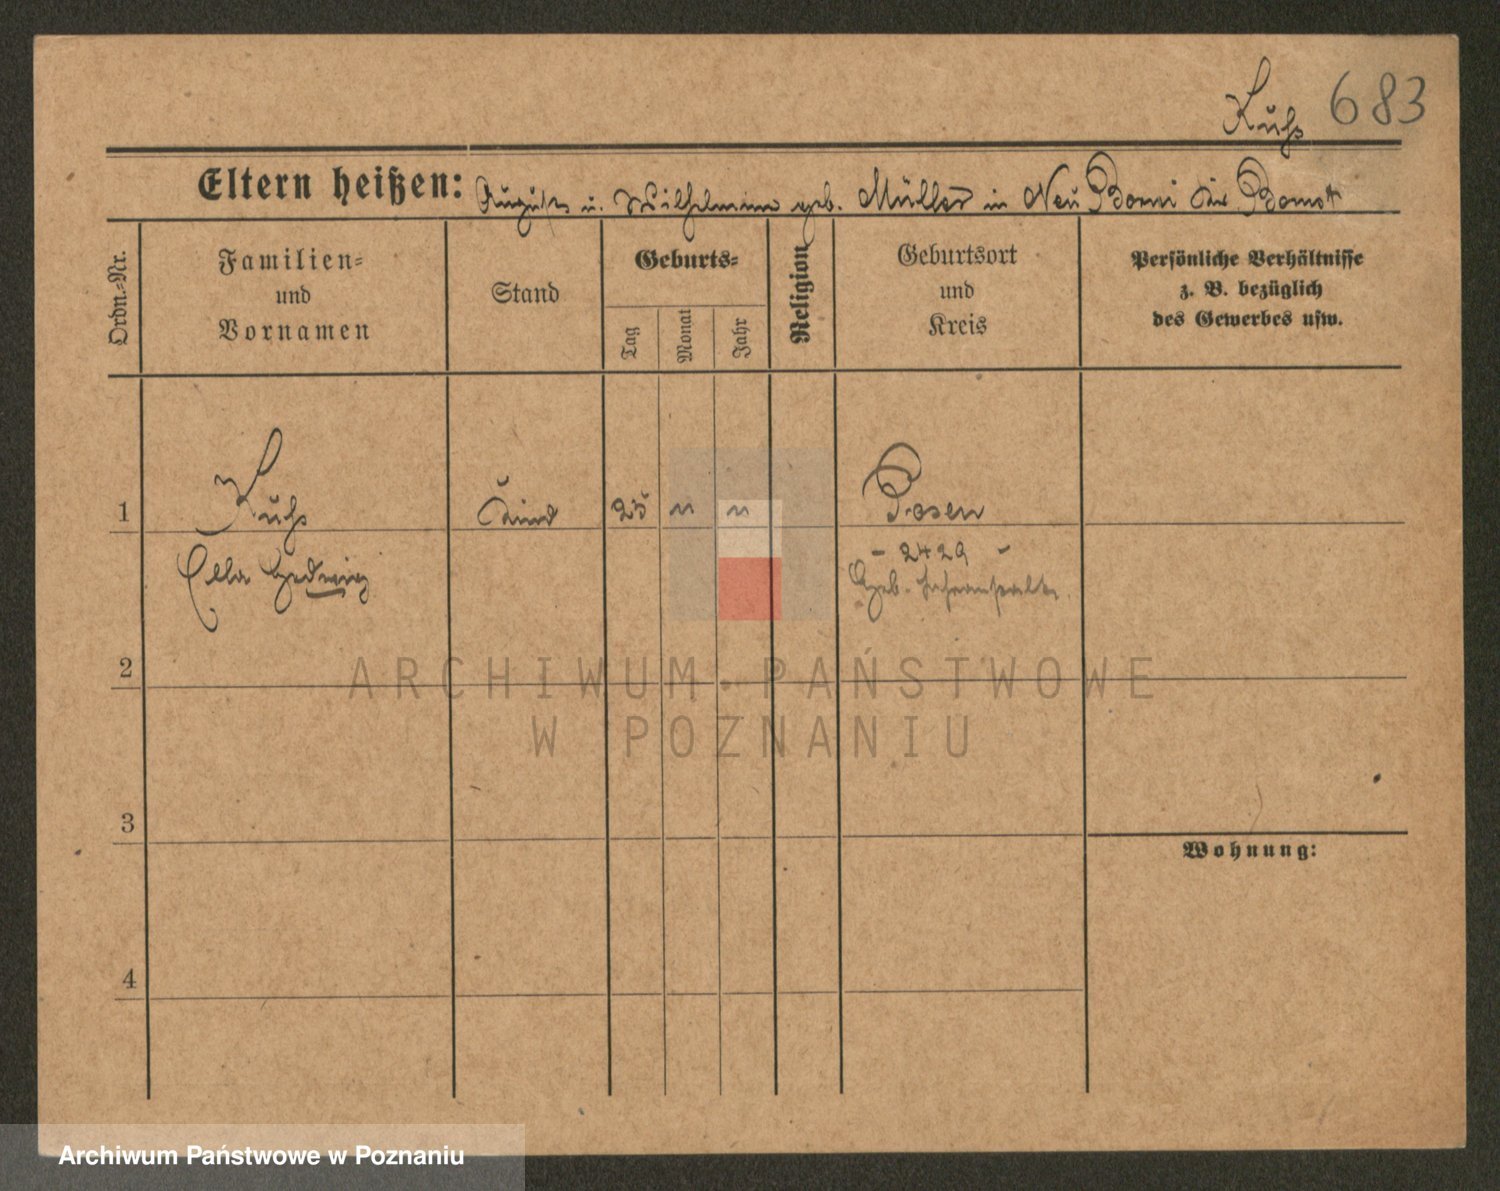 Kuhs 683
Eltern heißen: August u. Wilhelmine geb. Müller in Neu Bomi Kr Bomst
Ordn.-Nr.
Familien- und Vornamen
Stand
Geburts-
Tag
Monat
Jahr
Religion
Geburtsort und Kreis
Persönliche Verhältnisse
z. B. bezüglich
des Gewerbes usw.
1 Kuhs Kind 25 Posen
Ella Hedwig
- 2429 -
Geb.
2
3
Wohnung:
4
ARCHIWUM PAŃSTWOWE
W POZNANIU
Archiwum Państwowe w Poznaniu